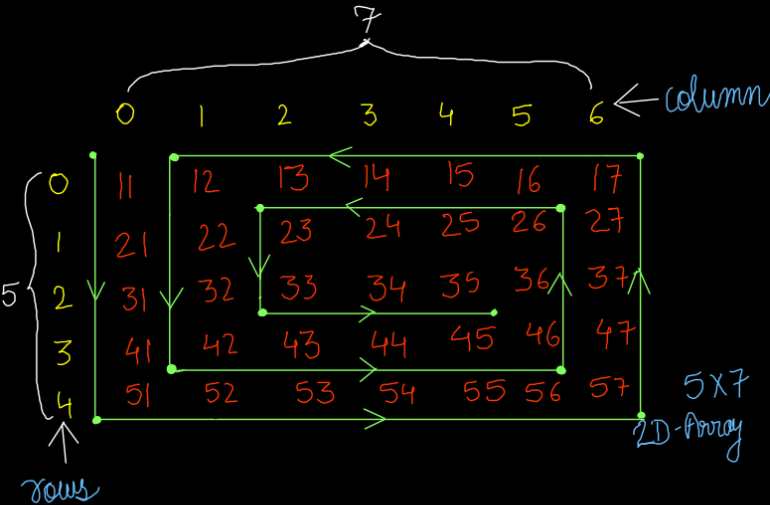 7
0 1 2 3 4 5 6 column
0 11 12 13 14 15 16 17
1 21 22 23 24 25 26 27
5
2 31 32 33 34 35 36 37
3 41 42 43 44 45 46 47
4 51 52 53 54 55 56 57
5X7
2D-Array
rows